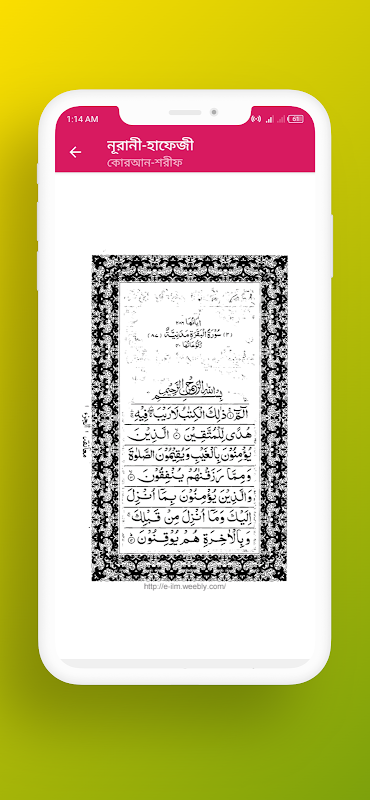 1:14 AM
নূরানী-হাফেজী
কোরআন-শরীফ
(٢) سُوْرَةُ الْبَقَرَةِ مَدَنِيَّةٌ (٨٧)
بِسْمِ اللهِ الرَّحْمٰنِ الرَّحِيْمِ
الٓمّٓ ۚ ذٰلِكَ الْكِتٰبُ لَا رَيْبَ ۛ فِيْهِ ۛ
هُدًى لِّلْمُتَّقِيْنَ ۙ الَّذِيْنَ
يُؤْمِنُوْنَ بِالْغَيْبِ وَيُقِيْمُوْنَ الصَّلٰوةَ
وَمِمَّا رَزَقْنٰهُمْ يُنْفِقُوْنَ ۙ
وَالَّذِيْنَ يُؤْمِنُوْنَ بِمَآ اُنْزِلَ
اِلَيْكَ وَمَآ اُنْزِلَ مِنْ قَبْلِكَ ۚ
وَبِالْاٰخِرَةِ هُمْ يُوْقِنُوْنَ ۗ
http://e-ilm.weebly.com/